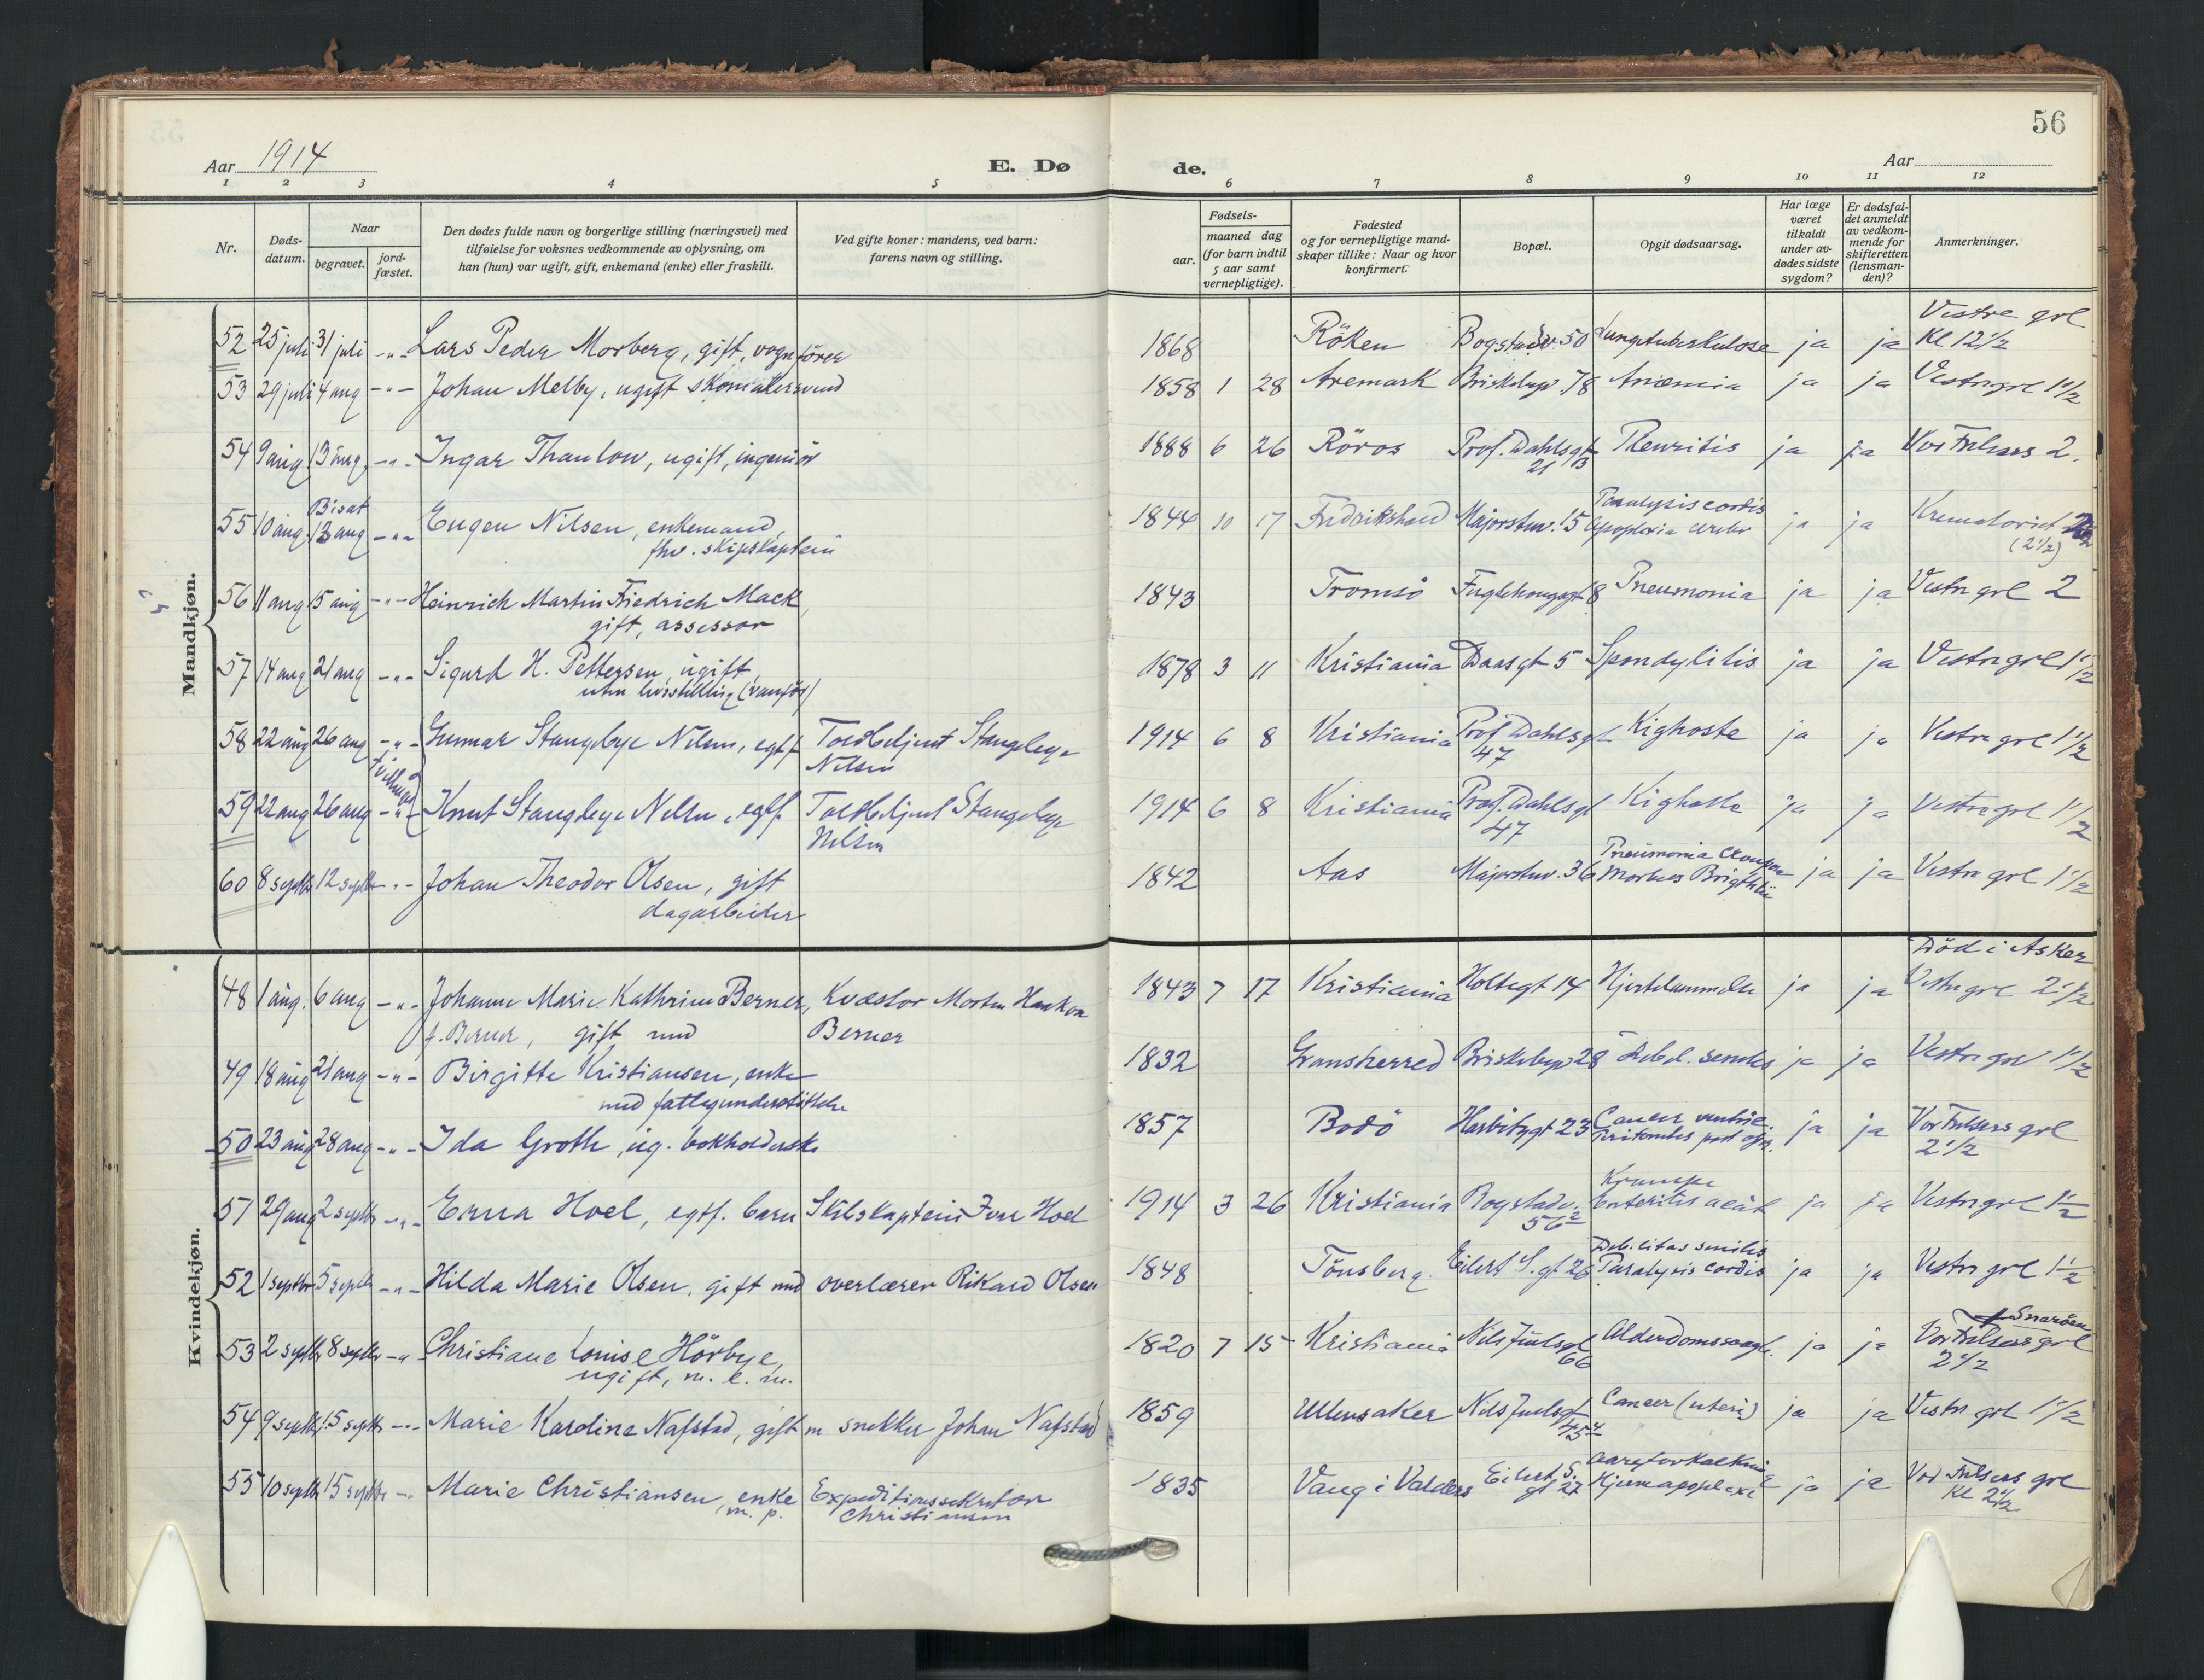 56
Aar 1914
E. Dø
de.
Aar
1 2 3 4 5 6 7 8 9 10 11 12
Nr.
Døds-
datum.
Naar
begravet.
jord-
fæstet.
Den dødes fulde navn og borgerlige stilling (næringsvei) med
tilføielse for voksnes vedkommende av oplysning, om
han (hun) var ugift, gift, enkemand (enke) eller fraskilt.
Ved gifte koner: mandens, ved barn:
farens navn og stilling.
Fødsels-
aar.
maaned dag
(for barn indtil
5 aar samt
vernepligtige).
Fødested
og for vernepligtige mand-
skaper tillike: Naar og hvor
konfirmert.
Bopæl.
Opgit dødsaarsag.
Har læge
været
tilkaldt
under av-
dødes sidste
sygdom?
Er dødsfal-
det anmeldt
av vedkom-
mende for
skifteretten
(lensman-
den)?
Anmerkninger.
Mandkjøn.
Vestre grl
52 25 juli 31 juli -"- Lars Peder Morberg, gift, vognfører 1868 Röken Bogstadv. 50 Lungetuberkulose ja ja Kl 12 1/2
53 29 juli 4 aug -"- Johan Melby, ugift 1858 1 28 Aremark Briskebyv. 78 Anæmia ja ja Vestre grl 1 1/2
54 9 aug 13 aug. -"- Ingar Thaulow, ugift, ingeniör 1888 6 26 Röros Prof. Dahlsgt Pleuritis ja ja Vor Frelsers 2.
Bisat
Paralysis cordis
55 10 aug. 13 aug -"- Eugen Nilsen, enkemand, 1844 10 17 Fredrikshald Majorstuv. 15 Apoplexia cerebr ja ja Krematoriet
fhv. skipskaptein
(2 1/2)
56 11 aug 15 aug -"- Heinrich Martin Friedrich Mack, 1843 Tromsö Fuglehaugsgt 8 Pneumonia ja ja Vestre grl 2
gift, assessor
57 14 aug 21 aug -"- Sigurd H. Pettersen, ugift, 1878 3 11 Kristiania Daasgt 5 Spondylitis ja ja Vestre grl 1 1/2
uten livsstilling (vanför)
58 22 aug 26 aug -"- Gunnar Stangebye Nilsen, egtf. Toldbetjent Stangebye 1914 6 8 Kristiania Prof Dahlsgt Kighoste ja ja Vestre grl 1 1/2
Nilsen
47
tvillinger
59 22 aug 26 aug -"- Knut Stangebye Nilsen, egtf. Toldbetjent Stangebye 1914 6 8 Kristiania Prof. Dahlsgt Kighoste ja ja Vestre grl 1 1/2
Nilsen
47
Pneumonia crouposa
60 8 septbr 12 septbr -"- Johan Theodor Olsen, gift 1842 Aas Majorstuv. 36 Morbus Brigthii ja ja Vestre grl 1 1/2
dagarbeider
Kvindekjøn.
Död i Asker
48 1 aug. 6 aug -"- Johanne Marie Kathrine Berner, Kvæstor Morten Haakon 1843 7 17 Kristiania Holtegt 14 Hjertelammelse ja ja Vestre grl 2 1/2
f. Berner, gift med Berner
49 18 aug 21 aug -"- Birgitte Kristiansen, enke 1832 Gransherred Briskebyv 28 Debil. senilis ja ja Vestre grl 1 1/2
med fattigunderstöttelse
50 23 aug 28 aug -"- Ida Groth, ug. bokholderske 1857 Bodö Harbitzgt 23 Cancer ventric. ja ja Vor Frelsers grl
Peritonitis post op.
2 1/2
Krampe
51 29 aug 2 septbr -"- Erna Hoel, egtf. barn Skibskaptein Iver Hoel 1914 3 26 Kristiania Bogstadv. Enteritis acut ja ja Vestre grl 1 1/2
56
Debilitas senilis
52 1 septbr 5 septbr -"- Hilda Marie Olsen, gift med overlærer Rikard Olsen 1848 Tönsberg. Eilert S. gt 26 Paralysis cordis ja ja Vestre grl 1 1/2
Snaröen
53 2 septbr 8 septbr -"- Christiane Louise Hörbye, 1820 7 15 Kristiania Nils Juelsgt Alderdomssvagh. ja ja Vor Frelsers grl
ugift, m. e. m.
66
2 1/2
54 9 septbr 15 septbr -"- Marie Karoline Nafstad, gift m snekker Johan Nafstad 1859 Ullensaker Nils Juelsgt Cancer (uteri) ja ja Vestre grl 1 1/2
Aareforkalkning
55 10 septbr 15 septbr -"- Marie Christiansen, enke Expeditionssekretær 1835 Vang i Valders Eilert S. Hjerneapoplexi ja ja Vor Frelsers grl
m. p. Christiansen
gt 27
Kl 2 1/2